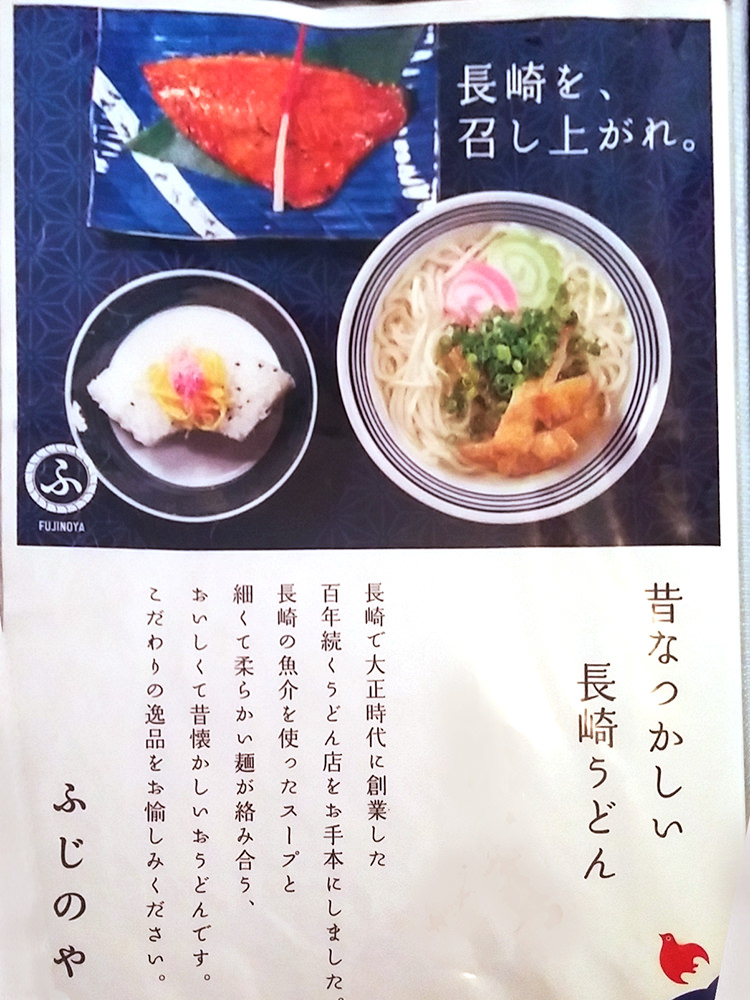 長崎を、
召し上がれ。
ふ
FUJINOYA
昔なつかしい
長崎うどん
長崎で大正時代に創業した
百年続くうどん店をお手本にしました。
長崎の魚介を使ったスープと
細くて柔らかい麺が絡み合う、
おいしくて昔懐かしいおうどんです。
こだわりの逸品をお愉しみください。
ふじのや